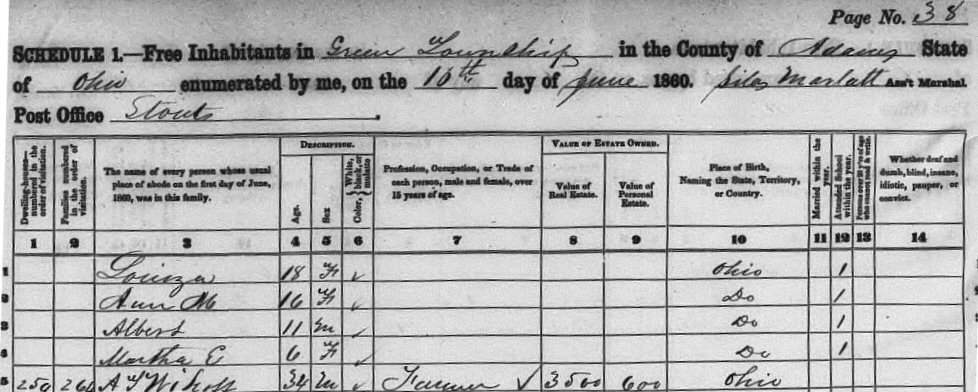 Page No. 38
SCHEDULE 1.—Free Inhabitants in Green Township in the County of Adams State
of Ohio enumerated by me, on the 16th day of June 1860. Silas Marlatt Ass't Marshal.
Post Office Stouts.
Dwelling-houses—numbered in the order of visitation.
Families numbered in the order of visitation.
The name of every person whose usual place of abode on the first day of June, 1860, was in this family.
DESCRIPTION.
Age.
Sex
Color, White, black, or mulatto
Profession, Occupation, or Trade of each person, male and female, over 15 years of age.
VALUE OF ESTATE OWNED.
Value of Real Estate.
Value of Personal Estate.
Place of Birth, Naming the State, Territory, or Country.
Married within the year.
Attended School within the year.
Persons over 20 y'rs of age who cannot read & write.
Whether deaf and dumb, blind, insane, idiotic, pauper, or convict.
1 2 3 4 5 6 7 8 9 10 11 12 13 14
1 Louisza 18 F ✓ Ohio 1
2 Ann M 16 F ✓ Do 1
3 Albert 11 m ✓ Do 1
4 Martha E 6 F ✓ Do 1
5 259 260 34 m ✓ Farmer ✓ 3500 600 Ohio